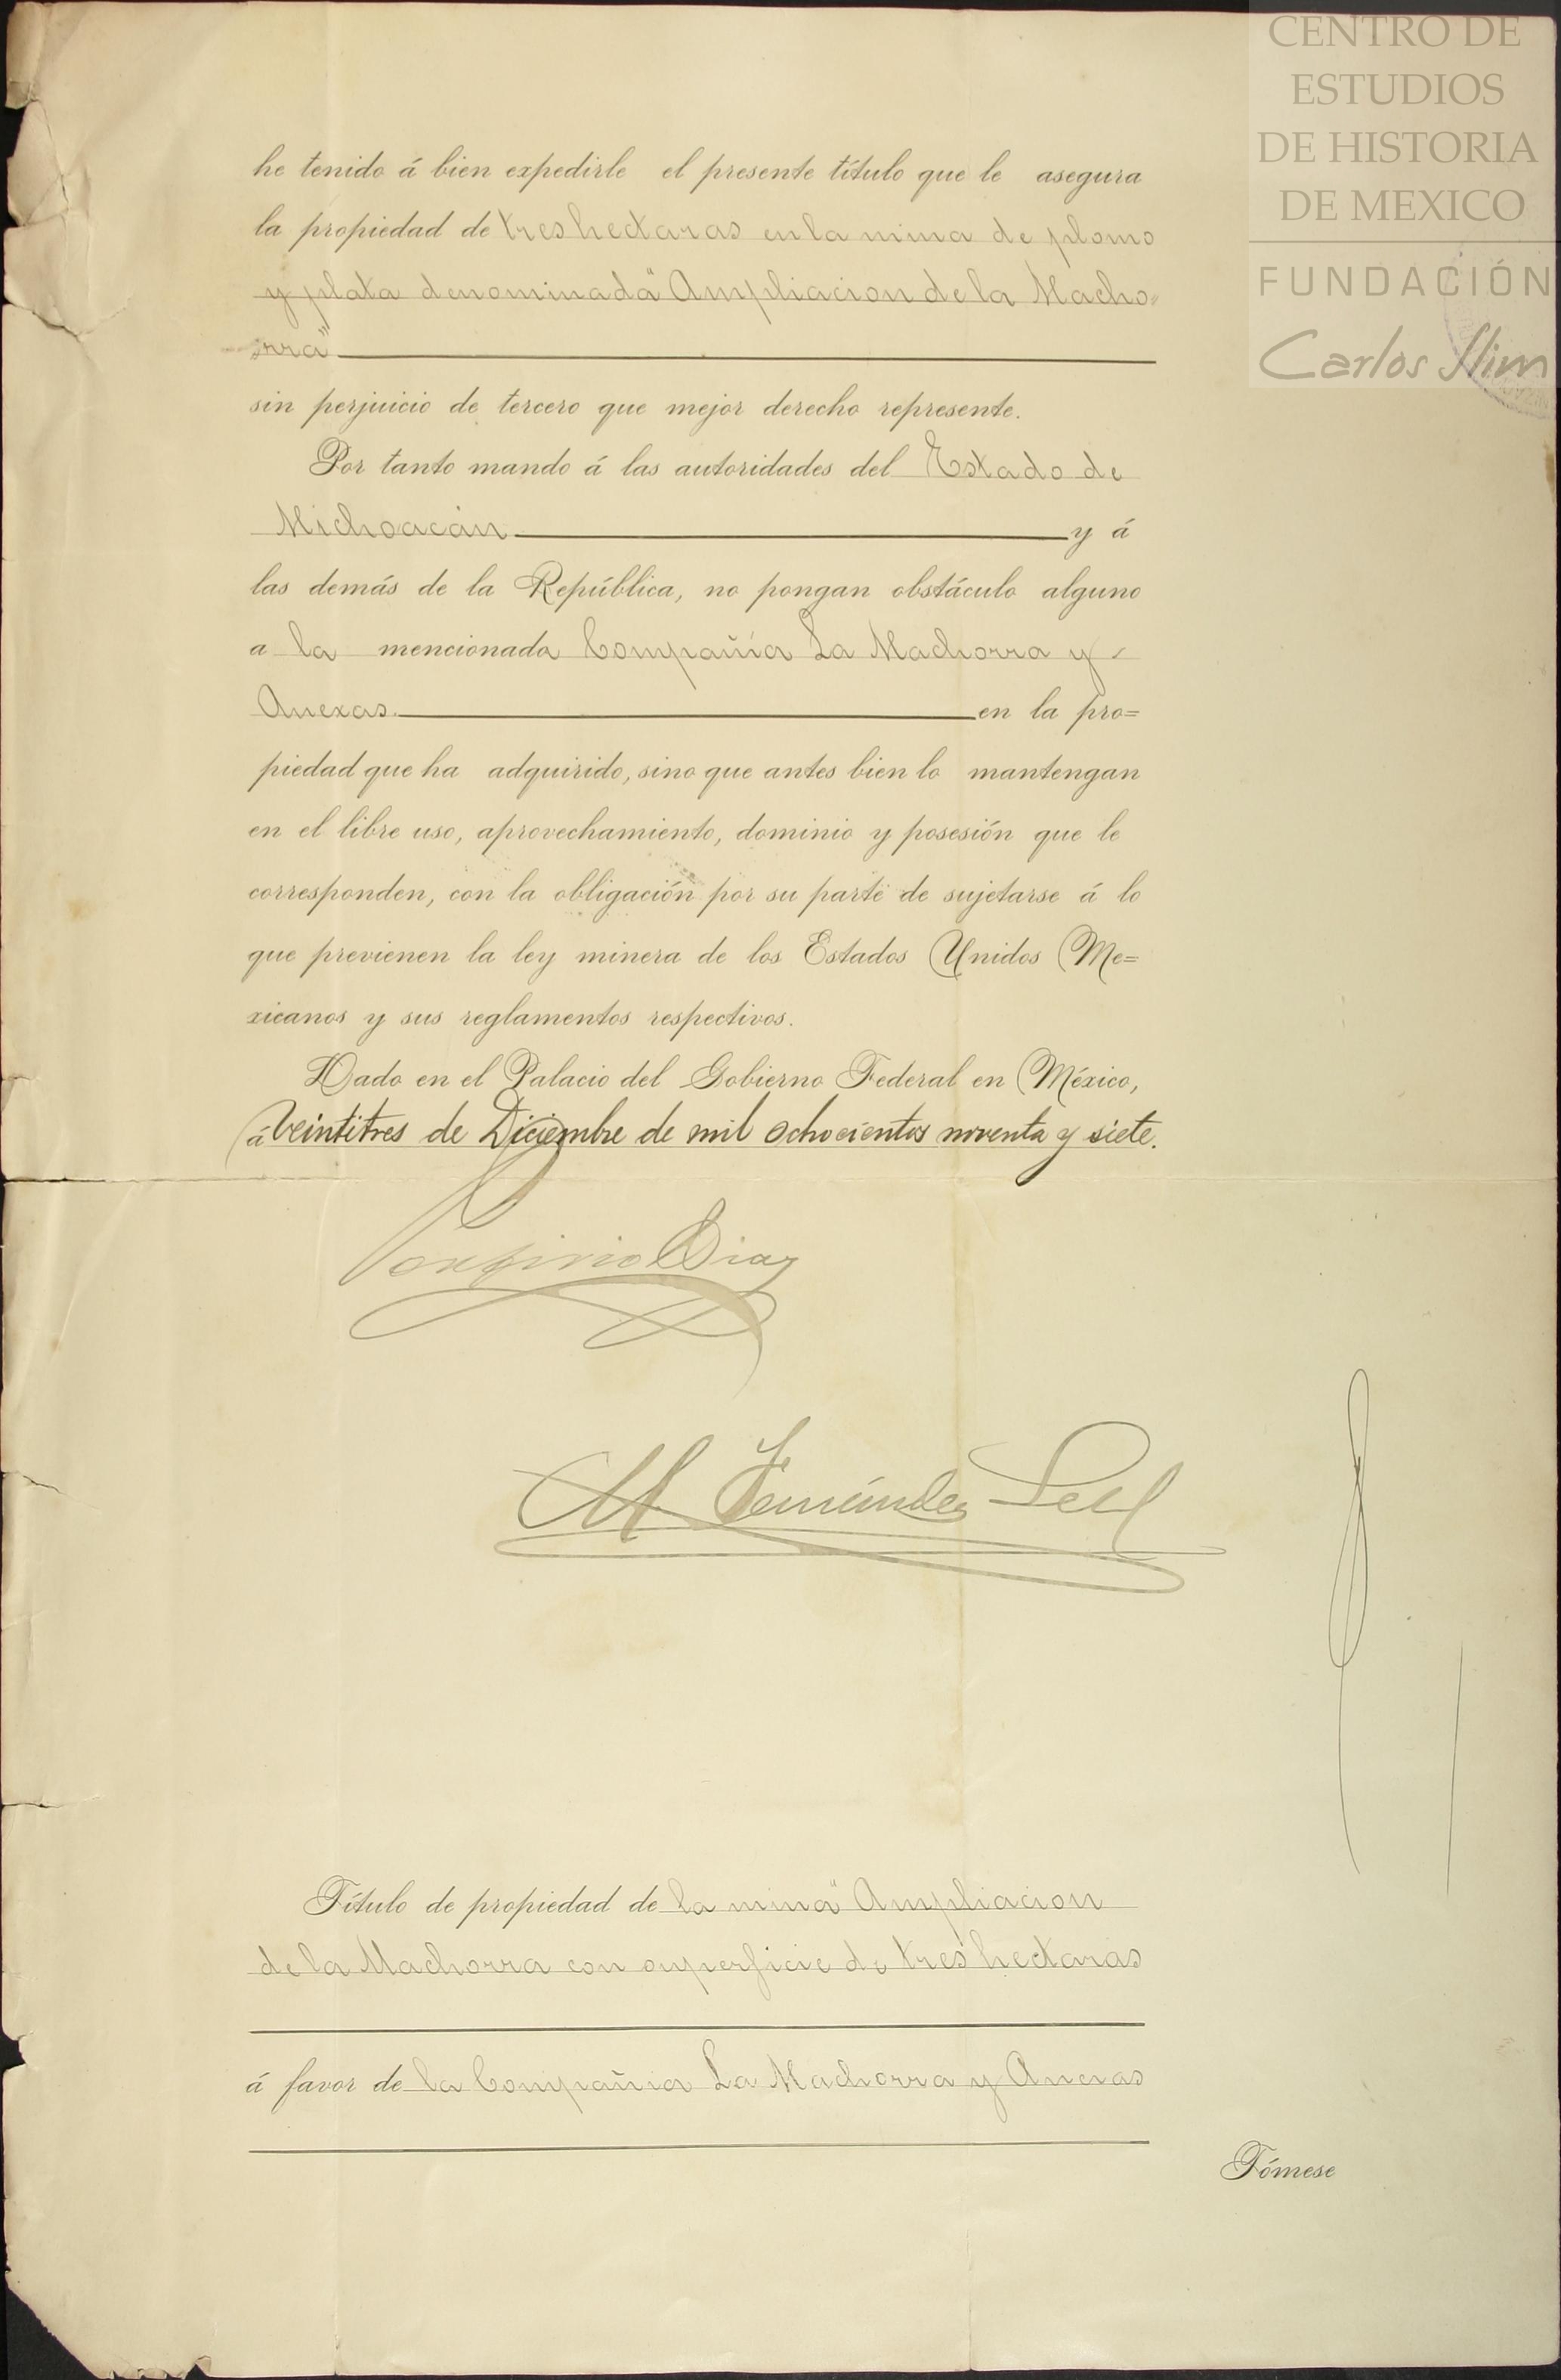 CENTRO DE
ESTUDIOS
DE HISTORIA
DE MEXICO
FUNDACIÓN
Carlos Slim
he tenido á bien expedirle el presente título que le asegura
la propiedad de tres hectaras en la mina de plomo
y plata denominada "Ampliacion de la Macho-
rra"
sin perjuicio de tercero que mejor derecho represente.
Por tanto mando á las autoridades del Estado de
Michoacán y á
las demás de la República, no pongan obstáculo alguno
a la mencionada Compañia La Machorra y
Anexas. en la pro=
piedad que ha adquirido, sino que antes bien lo mantengan
en el libre uso, aprovechamiento, dominio y posesión que le
corresponden, con la obligación por su parte de sujetarse á lo
que previenen la ley minera de los Estados Unidos Me=
xicanos y sus reglamentos respectivos.
Dado en el Palacio del Gobierno Federal en México,
á veintitres de Diciembre de mil ochocientos noventa y siete.
Porfirio Diaz
M Fernández Leal
Título de propiedad de la mina "Ampliacion
de la Machorra con superficie de tres hectaras
á favor de la Compañia La Machorra y Anexas
Tómese